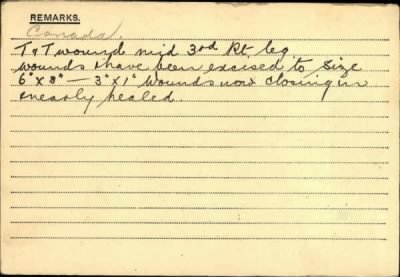 REMARKS.
Canada.
T & T wound mid 3rd Rt. leg
wounds & have been excised to size
6" x 3" — 3" x 1" Wounds now closing in
& nearly healed